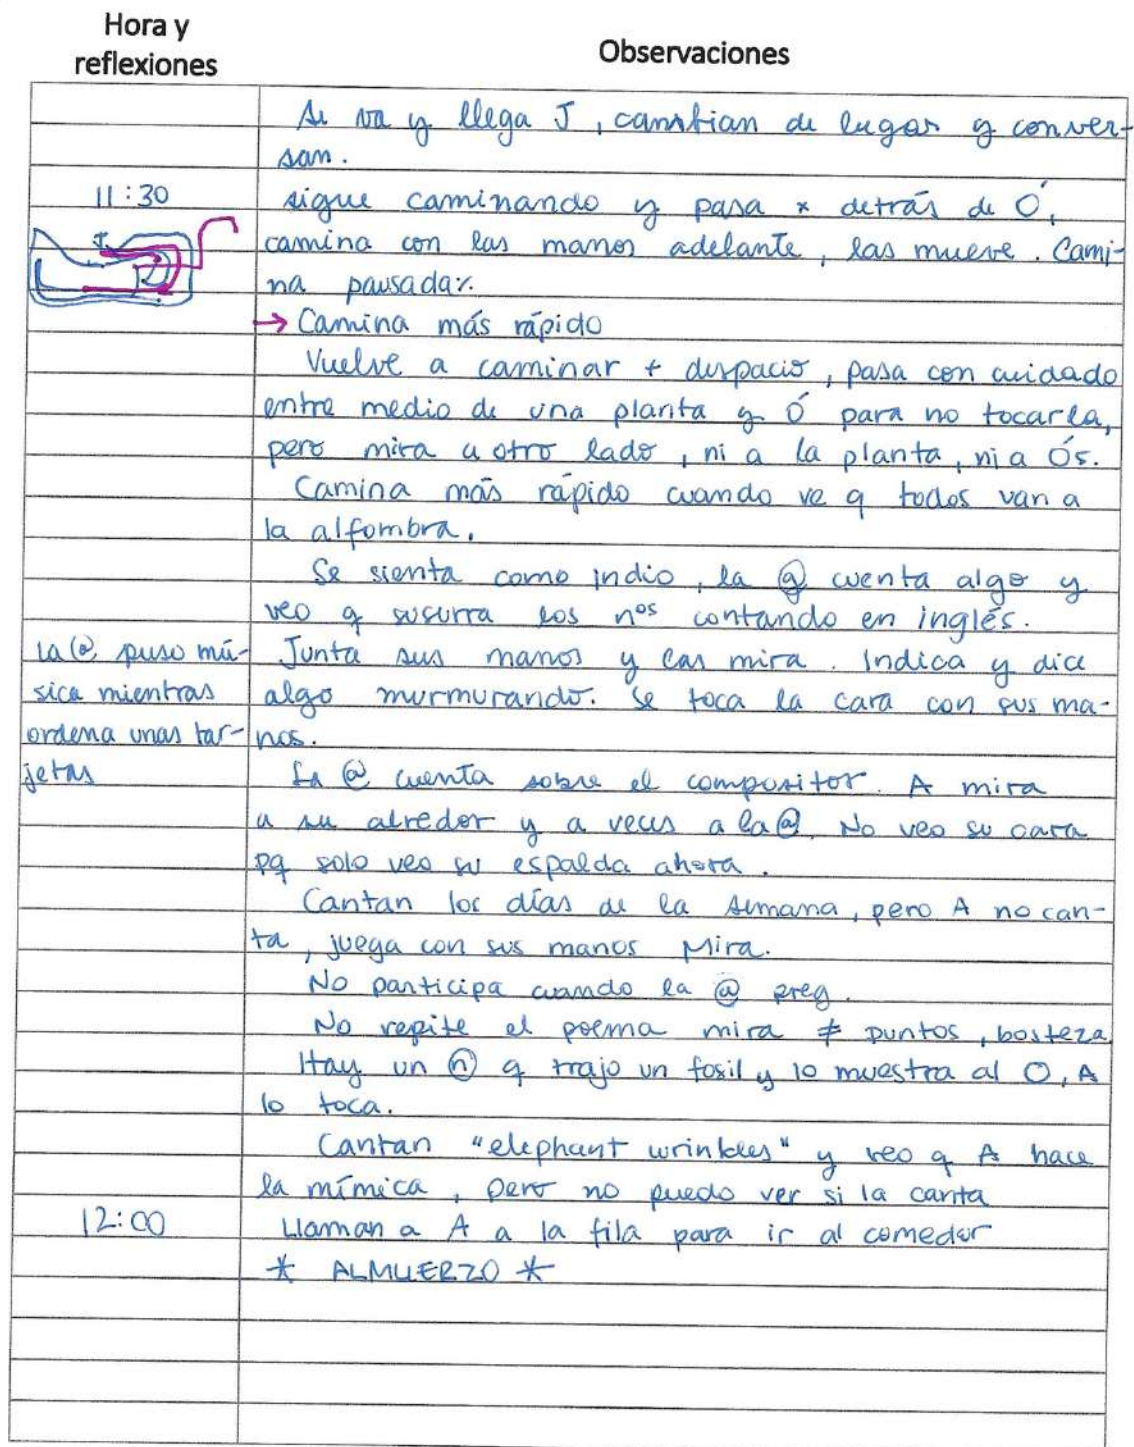 Hora y
reflexiones
Observaciones
Se va y llega J, cambian de lugar y conver-
san.
11:30
sigue caminando y pasa x detrás de Ó,
camina con las manos adelante, las mueve. Cami-
na pausada%.
→ Camina más rápido
Vuelve a caminar + despacio, pasa con cuidado
entre medio de una planta y Ó para no tocarla,
pero mira a otro lado, ni a la planta, ni a Ós.
Camina más rápido cuando ve q todos van a
la alfombra.
Se sienta como indio, la @ cuenta algo y
veo q susurra los nos contando en inglés.
Junta sus manos y las mira. Indica y dice
algo murmurando. Se toca la cara con sus ma-
nos.
la @ puso mú-
sica mientras
ordena unas tar-
jetas
La @ cuenta sobre el compositor. A mira
a su alredor y a veces a la @. No veo su cara
pq solo veo su espalda ahora.
Cantan los días de la semana, pero A no can-
ta, juega con sus manos Mira.
No participa cuando la @ preg.
No repite el poema mira ≠ puntos, bosteza.
Hay un ⓝ q trajo un fosil y lo muestra al O, A
lo toca.
Cantan "elephant wrinkles" y veo q A hace
la mímica, pero no puedo ver si la canta
12:00
Llaman a A a la fila para ir al comedor
* ALMUERZO *